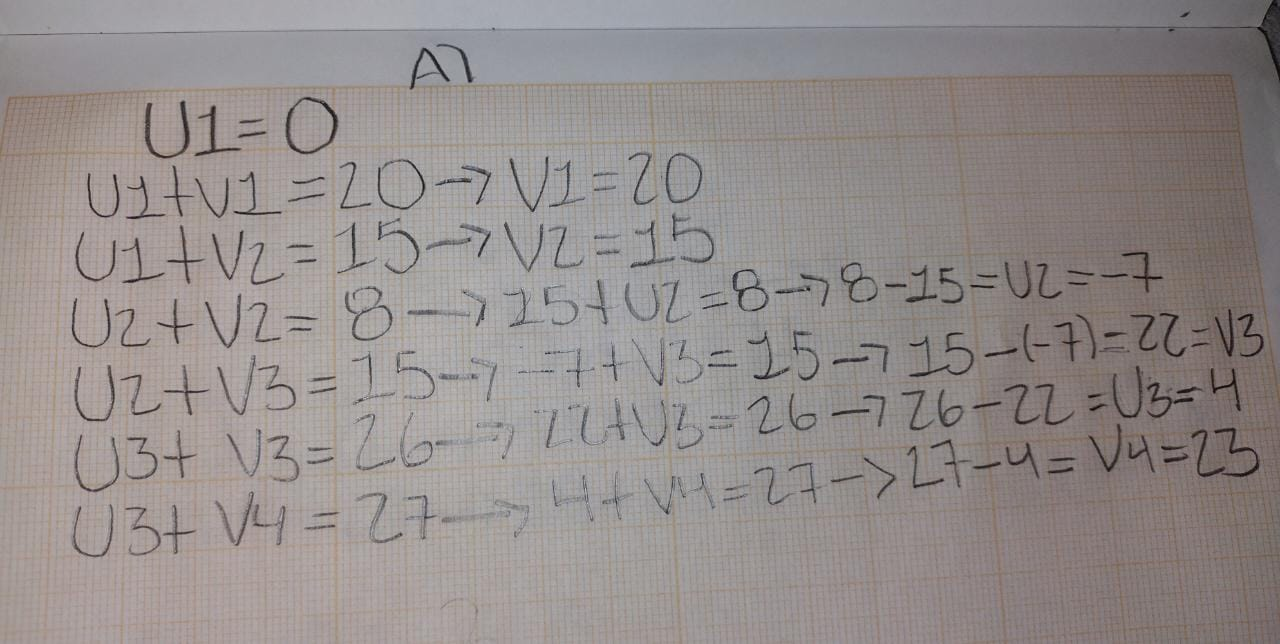 A)
U1=0
U1+V1=20→V1=20
U1+V2=15→V2=15
U2+V2=8→15+U2=8→8-15=U2=-7
U2+V3=15→-7+V3=15→15-(-7)=22=V3
U3+V3=26→22+U3=26→26-22=U3=4
U3+V4=27→4+V4=27→27-4=V4=23